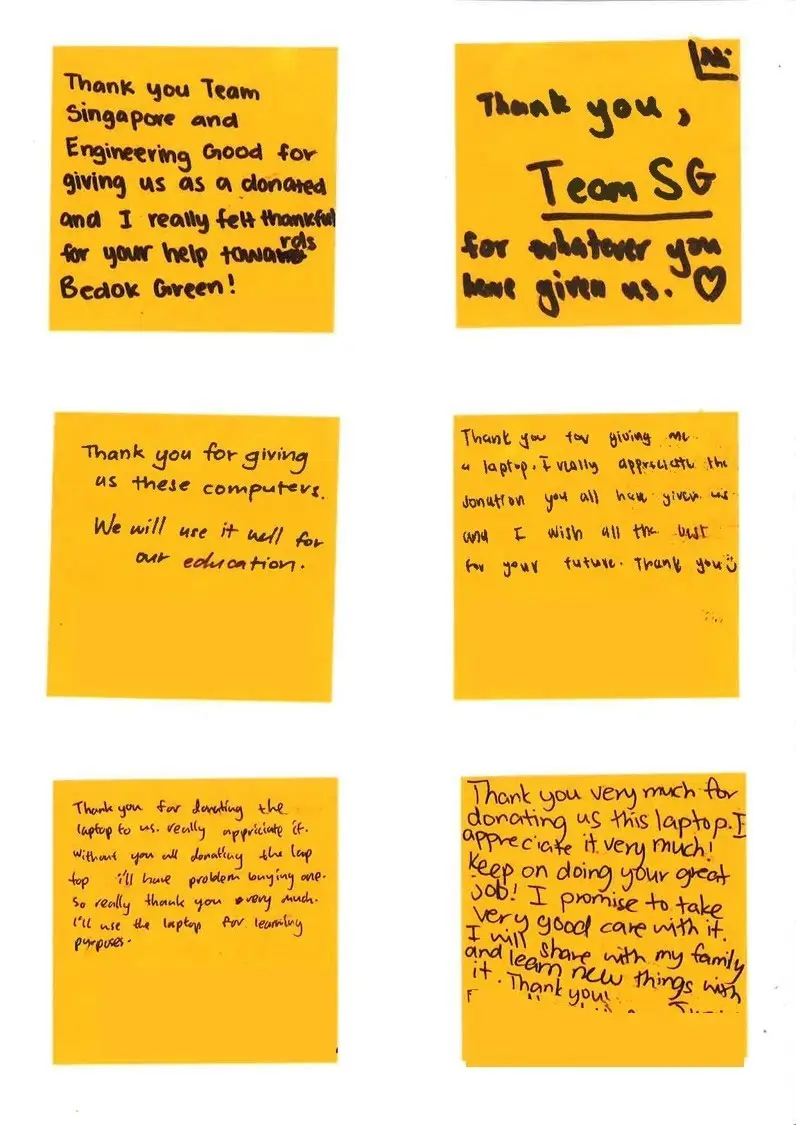 Thank you Team
Singapore and
Engineering Good for
giving us as a donated
and I really felt thankful
for your help towards
Bedok Green!
Thank you,
Team SG
for whatever you
have given us. ♡
Thank you for giving
us these computers.
We will use it well for
our education.
Thank you for giving me
a laptop. I really appreciate the
donation you all have given us
and I wish all the best
for your future. Thank you☺
Thank you for donating the
laptop to us. really appriciate it.
without you all donating the lap
top i'll have problem buying one.
so really thank you very much.
I'll use the laptop for learning
purposes.
Thank you very much for
donating us this laptop. I
appreciate it very much!
Keep on doing your great
job! I promise to take
very good care with it.
I will share with my family
and learn new things with
it. Thank you!